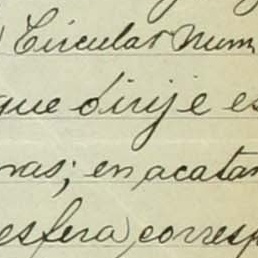 Circular Num
que dirije es
nas; en acatan
esfera corresp